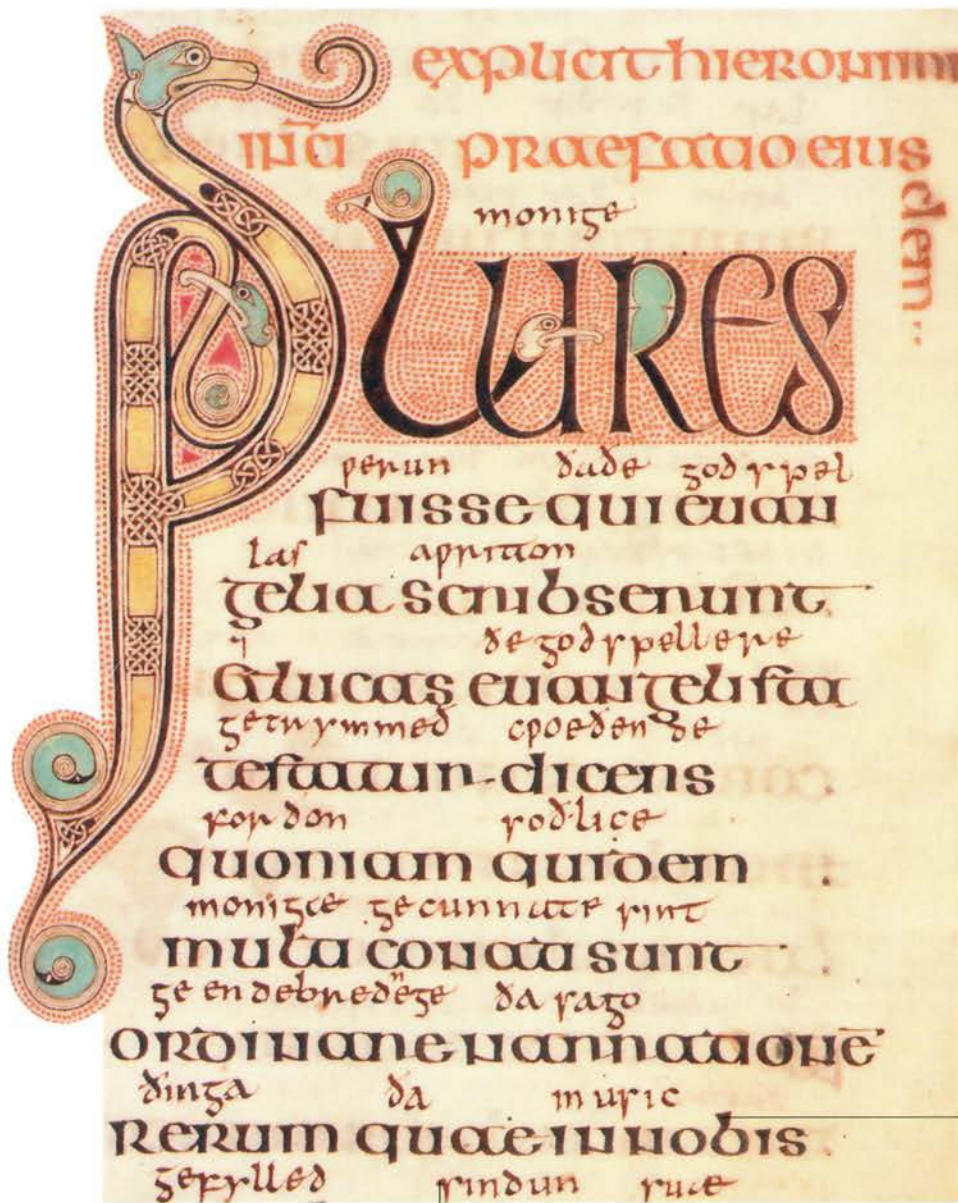 explicit hieronimi
inc̄i praefatio eius
dem
monige
PLURES
ƿerun ðaðe godspel
fuisse qui euan
las aƿritton
gelia scribserunt
⁊ ðe godspellere
& lucas euangelista
getrymmed cƿoeðende
testatur dicens
forðon soðlice
quoniam quidem
monigæ gecunnate sint
multi conati sunt
ge endebrednege ða sago
ordinare narrationē
ðinga ða in usic
rerum quae in nobis
gefylled sindun suæ